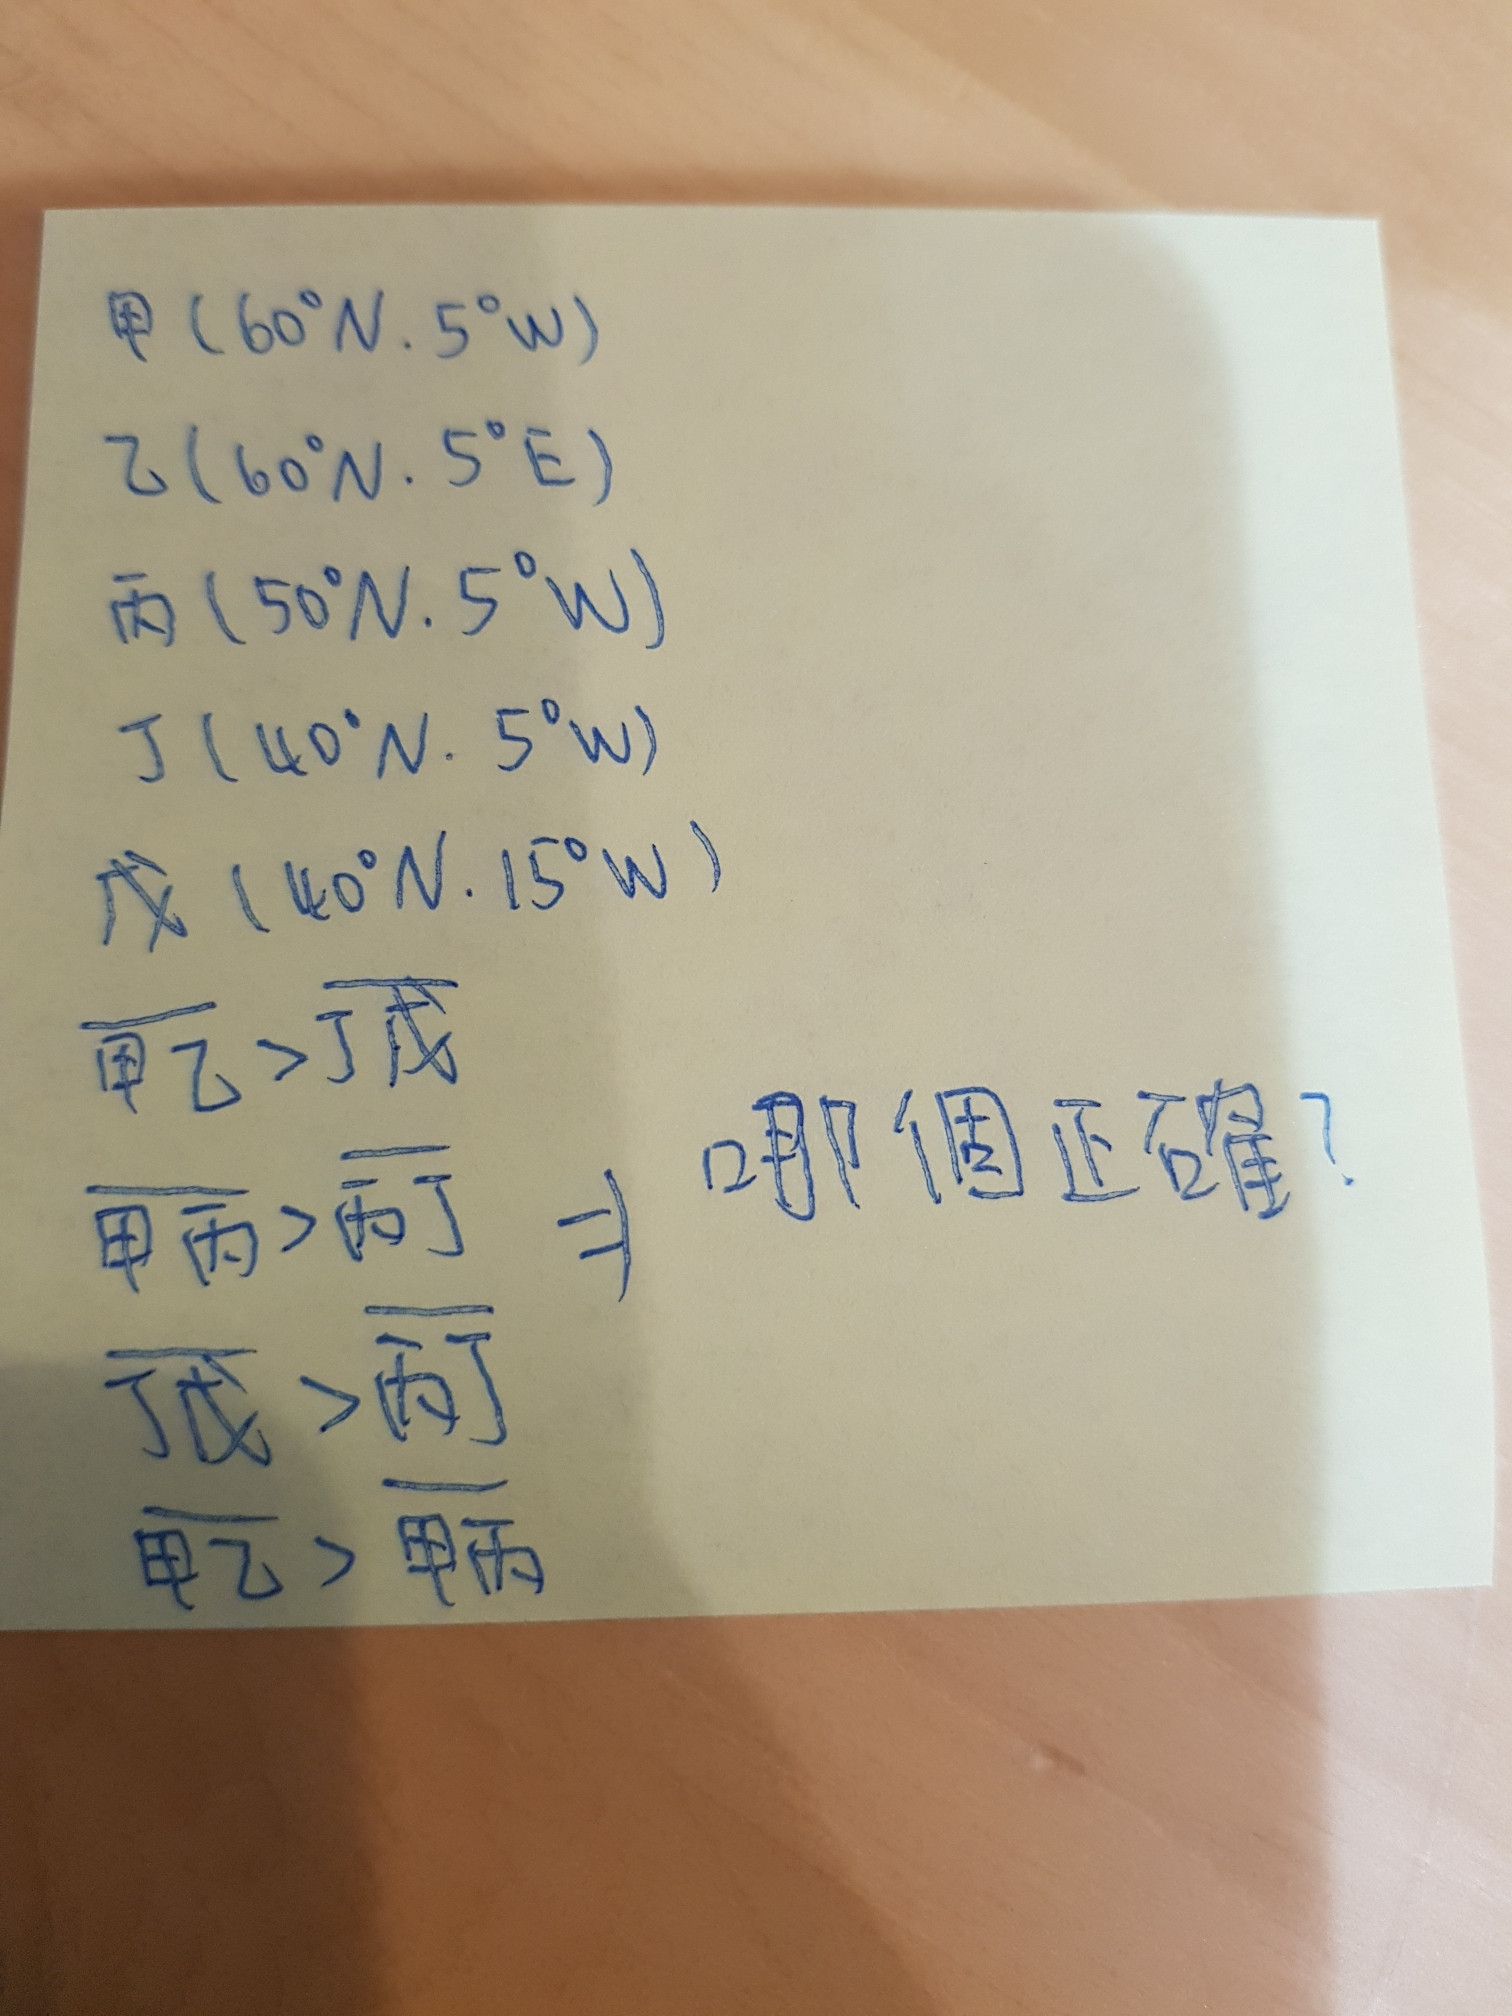 甲(60°N.5°W)
乙(60°N.5°E)
丙(50°N.5°W)
丁(40°N.5°W)
戊(40°N.15°W)
甲乙>丁戊
甲丙>丙丁 ⇒ 哪個正確?
丁戊>丙丁
甲乙>甲丙